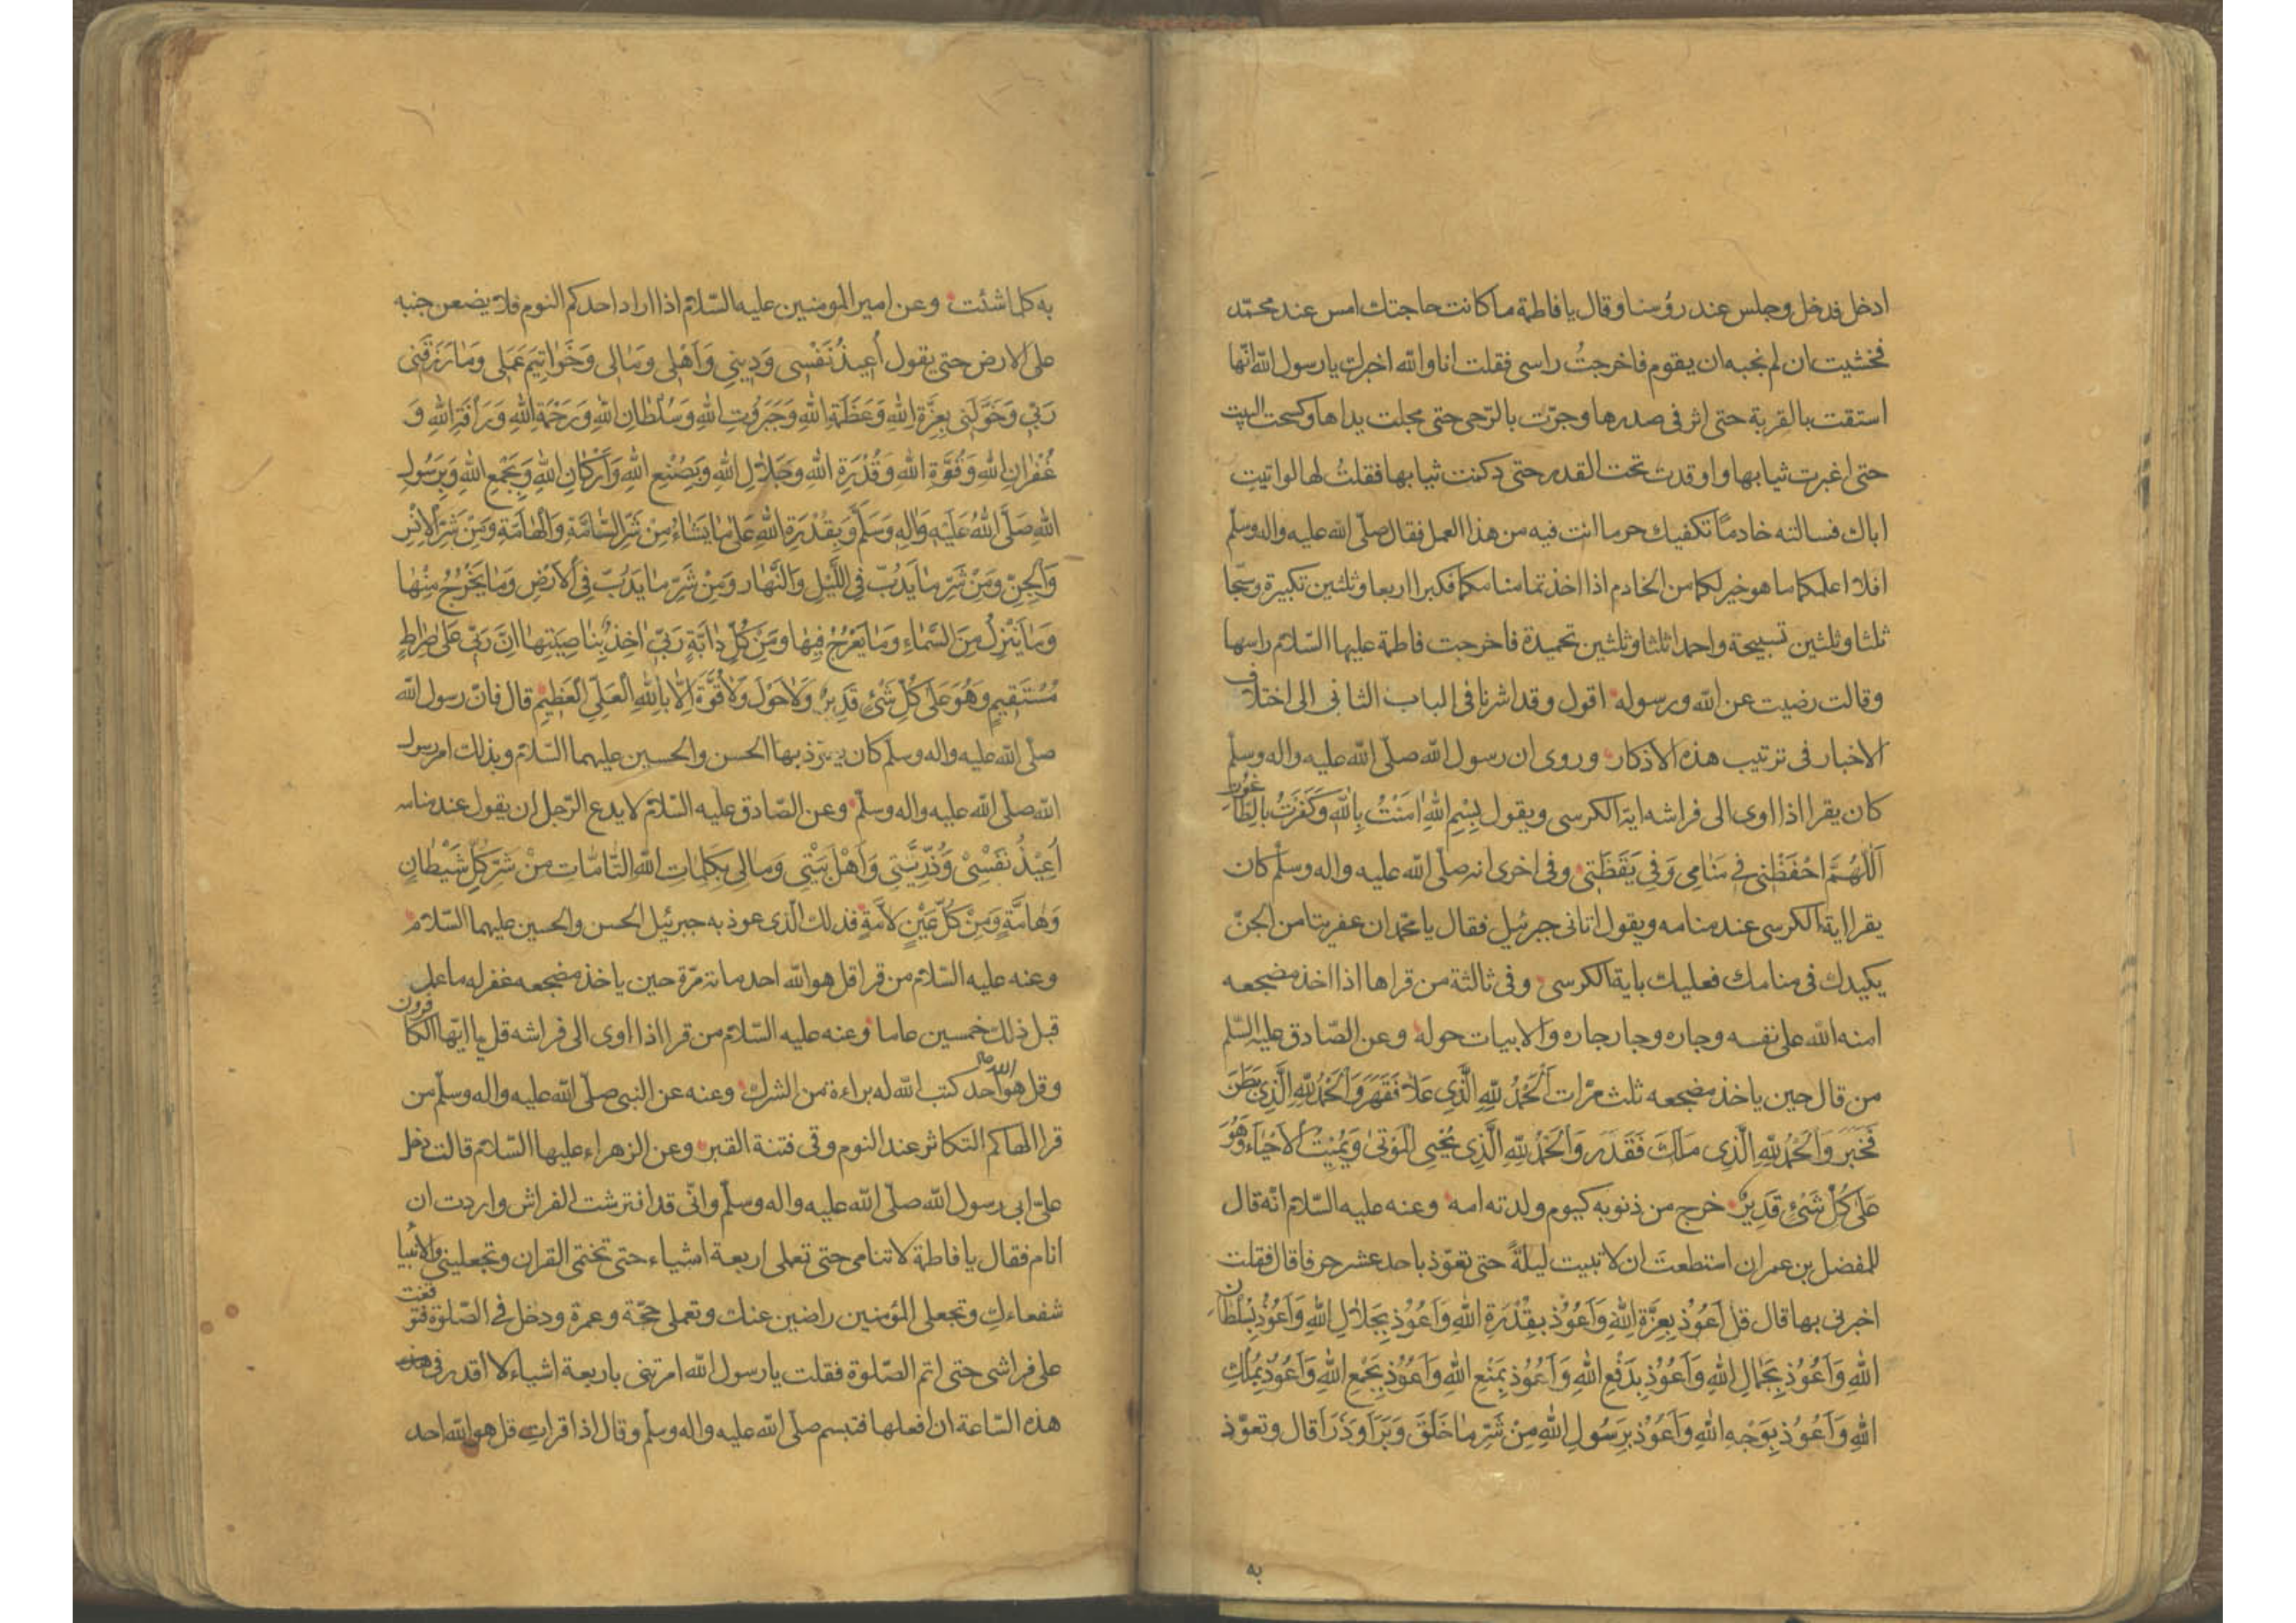 ادخل فدخل وجلس عند رؤسنا وقال يا فاطمة ما كانت حاجتك امس عند محمّد
فخشيت ان لم نجبه ان يقوم فاخرجتُ راسى فقلت انا والله اخبرك يا رسول الله انّها
استقت بالقربة حتى اثر فى صدرها وجرّت بالرّحى حتى مجلت يداها وكسحت البيت
حتى اغبرت ثيابها واوقدت تحت القدر حتى دكنت ثيابها فقلتُ لها لو اتيتِ
اباك فسالته خادمًا تكفيك حر ما انت فيه من هذا العمل فقال صلّى الله عليه واله وسلّم
افلا اعلمكما ما هو خير لكما من الخادم اذا اخذتما منامكما فكبرا اربعا وثلثين تكبيرة وسبّحا
ثلثا وثلثين تسبيحة واحمدا ثلثا وثلثين تحميدة فاخرجت فاطمة عليها السّلام راسها
وقالت رضيت عن الله ورسوله اقول وقد اشرنا فى الباب الثانى الى اختلاف
الاخبار فى ترتيب هذه الاذكار وروى ان رسول الله صلّى الله عليه واله وسلّم
كان يقرا اذا اوى الى فراشه اية الكرسى ويقول بِسْمِ اللهِ اٰمَنْتُ بِاللهِ وَكَفَرْتُ بِالطَّاغُوتِ
اَللّٰهُمَّ احْفَظْنِى فِى مَنَامِى وَفِى يَقَظَتِى وفى اخرى انه صلّى الله عليه واله وسلّم كان
يقرا اية الكرسى عند منامه ويقول اتانى جبرئيل فقال يا محمّد ان عفريتا من الجنّ
يكيدك فى منامك فعليك باية الكرسى وفى ثالثة من قراها اذا اخذ مضجعه
امنه الله على نفسه وجاره وجار جاره والابيات حوله وعن الصّادق عليه السّلم
من قال حين ياخذ مضجعه ثلث مرّات اَلْحَمْدُ لِلّٰهِ الَّذِى عَلَا فَقَهَرَ وَالْحَمْدُ لِلّٰهِ الَّذِى بَطَنَ
فَخَبَرَ وَالْحَمْدُ لِلّٰهِ الَّذِى مَلَكَ فَقَدَرَ وَالْحَمْدُ لِلّٰهِ الَّذِى يُحْيِى الْمَوْتٰى وَيُمِيتُ الْاَحْيَاءَ وَهُوَ
عَلٰى كُلِّ شَىْءٍ قَدِيرٌ خرج من ذنوبه كيوم ولدته امه وعنه عليه السّلام انّه قال
للمفضل بن عمر ان استطعت ان لا تبيت ليلةً حتى تعوّذ باحد عشر حرفا قال فقلت
اخبرنى بها قال قل اَعُوذُ بِعِزَّةِ اللهِ وَاَعُوذُ بِقُدْرَةِ اللهِ وَاَعُوذُ بِجَلَالِ اللهِ وَاَعُوذُ بِسُلْطَانِ
اللهِ وَاَعُوذُ بِجَمَالِ اللهِ وَاَعُوذُ بِدَفْعِ اللهِ وَاَعُوذُ بِمَنْعِ اللهِ وَاَعُوذُ بِجَمْعِ اللهِ وَاَعُوذُ بِمُلْكِ
اللهِ وَاَعُوذُ بِوَجْهِ اللهِ وَاَعُوذُ بِرَسُولِ اللهِ مِنْ شَرِّ مَا خَلَقَ وَبَرَاَ وَذَرَاَ قال وتعوّذ
به
به كلما شئت وعن امير المومنين عليه السّلام اذا اراد احدكم النوم فلا يضعن جنبه
على الارض حتى يقول اُعِيذُ نَفْسِى وَدِينِى وَاَهْلِى وَمَالِى وَخَوَاتِيمَ عَمَلِى وَمَا رَزَقَنِى
رَبِّى وَخَوَّلَنِى بِعِزَّةِ اللهِ وَعَظَمَةِ اللهِ وَجَبَرُوتِ اللهِ وَسُلْطَانِ اللهِ وَرَحْمَةِ اللهِ وَرَاْفَةِ اللهِ وَ
غُفْرَانِ اللهِ وَقُوَّةِ اللهِ وَقُدْرَةِ اللهِ وَجَلَالِ اللهِ وَبِصُنْعِ اللهِ وَاَرْكَانِ اللهِ وَبِجَمْعِ اللهِ وَبِرَسُولِ
اللهِ صَلَّى اللهُ عَلَيْهِ وَاٰلِهِ وَسَلَّمَ وَبِقُدْرَةِ اللهِ عَلٰى مَا يَشَاءُ مِنْ شَرِّ السَّامَّةِ وَالْهَامَّةِ وَمِنْ شَرِّ الْاِنْسِ
وَالْجِنِّ وَمِنْ شَرِّ مَا يَدُبُّ فِى اللَّيْلِ وَالنَّهَارِ وَمِنْ شَرِّ مَا يَدُبُّ فِى الْاَرْضِ وَمَا يَخْرُجُ مِنْهَا
وَمَا يَنْزِلُ مِنَ السَّمَاءِ وَمَا يَعْرُجُ فِيهَا وَمِنْ كُلِّ دَابَّةٍ رَبِّى اٰخِذٌ بِنَاصِيَتِهَا اِنَّ رَبِّى عَلٰى صِرَاطٍ
مُسْتَقِيمٍ وَهُوَ عَلٰى كُلِّ شَىْءٍ قَدِيرٌ وَلَا حَوْلَ وَلَا قُوَّةَ اِلَّا بِاللهِ الْعَلِىِّ الْعَظِيمِ قال فانّ رسول الله
صلّى الله عليه واله وسلّم كان يعوّذ بها الحسن والحسين عليهما السّلام وبذلك امر رسول
الله صلّى الله عليه واله وسلّم وعن الصّادق عليه السّلام لا يدع الرّجل ان يقول عند منامه
اُعِيذُ نَفْسِى وَذُرِّيَّتِى وَاَهْلَ بَيْتِى وَمَالِى بِكَلِمَاتِ اللهِ التَّامَّاتِ مِنْ شَرِّ كُلِّ شَيْطَانٍ
وَهَامَّةٍ وَمِنْ كُلِّ عَيْنٍ لَامَّةٍ فذلك الّذى عوذ به جبرئيل الحسن والحسين عليهما السّلام
وعنه عليه السّلام من قرا قل هو الله احد مائة مرّة حين ياخذ مضجعه غفر له ما عمل
قبل ذلك خمسين عاما وعنه عليه السّلام من قرا اذا اوى الى فراشه قل يا ايّها الكافرون
وقل هو الله احد كتب الله له براءة من الشرك وعنه عن النبى صلّى الله عليه واله وسلّم من
قرا الهاكم التكاثر عند النوم وقى فتنة القبر وعن الزهراء عليها السّلام قالت دخل
علىّ ابى رسول الله صلّى الله عليه واله وسلّم وانّى قد افترشت الفراش واردت ان
انام فقال يا فاطمة لا تنامى حتى تعملى اربعة اشياء حتى تختمى القران وتجعلينى والانبيا
شفعاءكِ وتجعلى المؤمنين راضين عنك وتعملى حجّة وعمرة ودخل فى الصّلوة فتوقفت
على فراشى حتى اتم الصّلوة فقلت يا رسول الله امرتنى باربعة اشياء لا اقدر فى
هذه السّاعة ان افعلها فتبسم صلّى الله عليه واله وسلّم وقال اذا قراتِ قل هو الله احد